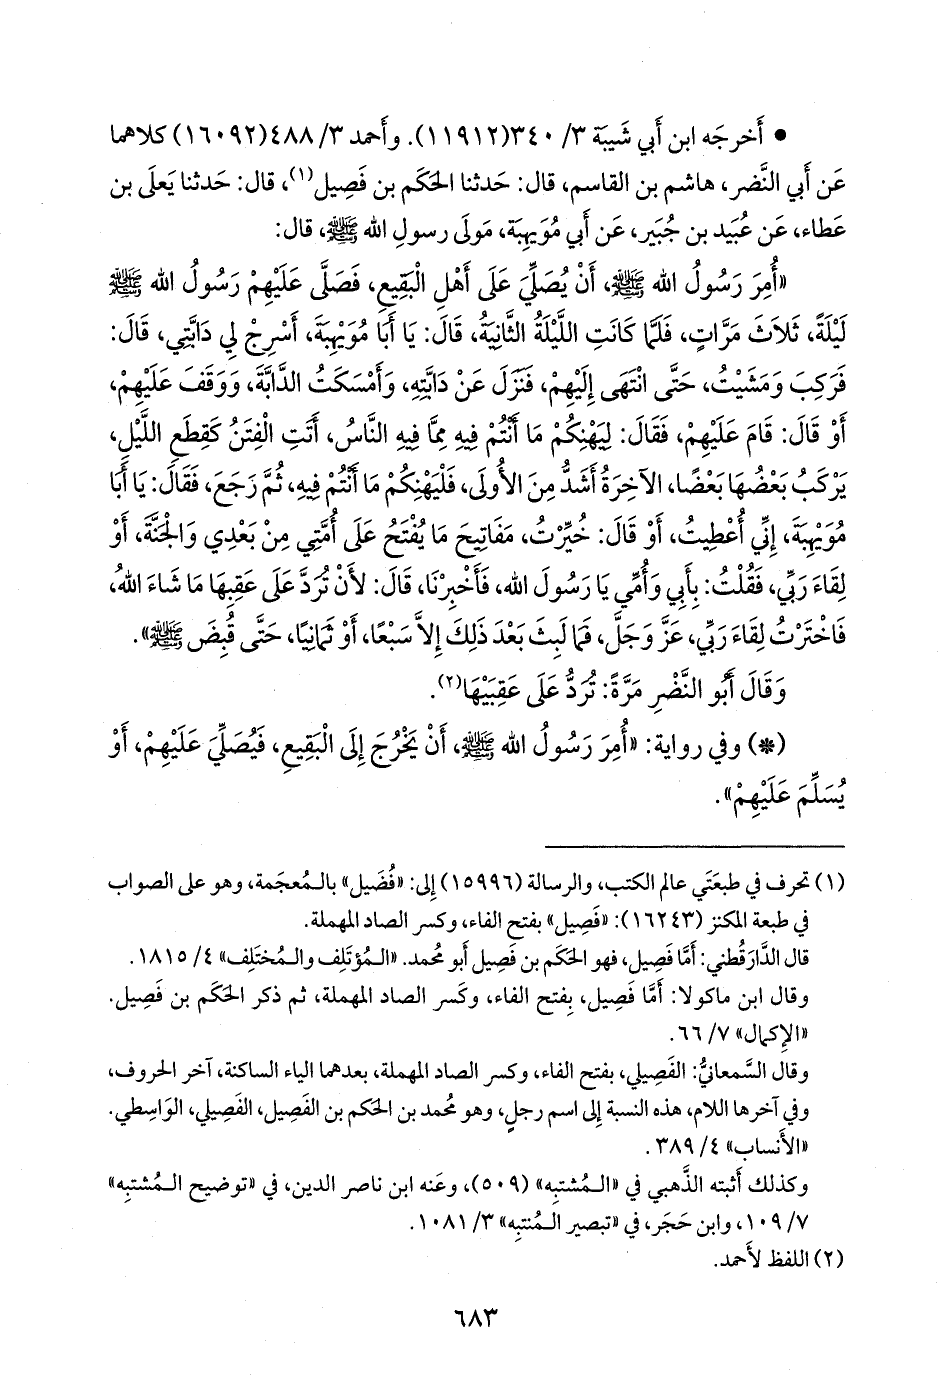 • أَخرجَه ابن أَبي شَيبَة ٣/ ٣٤٠(١١٩١٢). وأَحمد ٣/ ٤٨٨(١٦٠٩٢) كلاهما
عَن أَبي النَّضر، هاشم بن القاسم، قال: حَدثنا الحَكَم بن فَصِيل(١)، قال: حَدثنا يَعلَى بن
عَطاء، عَن عُبَيد بن جُبَير، عَن أَبي مُوَيهِبَة، مَولَى رسولِ الله ﷺ، قال:
«أُمِرَ رَسُولُ الله ﷺ، أَنْ يُصَلِّيَ عَلَى أَهْلِ الْبَقِيعِ، فَصَلَّى عَلَيْهِمْ رَسُولُ الله ﷺ
لَيْلَةً، ثَلَاثَ مَرَّاتٍ، فَلَمَّا كَانَتِ اللَّيْلَةُ الثَّانِيَةُ، قَالَ: يَا أَبَا مُوَيْهِبَةَ، أَسْرِجْ لِي دَابَّتِي، قَالَ:
فَرَكِبَ وَمَشَيْتُ، حَتَّى انْتَهَى إِلَيْهِمْ، فَنَزَلَ عَنْ دَابَّتِهِ، وَأَمْسَكَتُ الدَّابَّةَ، وَوَقَفَ عَلَيْهِمْ،
أَوْ قَالَ: قَامَ عَلَيْهِمْ، فَقَالَ: لِيَهْنِكُمْ مَا أَنْتُمْ فِيهِ مِمَّا فِيهِ النَّاسُ، أَتَتِ الْفِتَنُ كَقِطَعِ اللَّيْلِ،
يَرْكَبُ بَعْضُهَا بَعْضًا، الآخِرَةُ أَشَدُّ مِنَ الأُولَى، فَلْيَهْنِكُمْ مَا أَنْتُمْ فِيهِ، ثُمَّ رَجَعَ، فَقَالَ: يَا أَبَا
مُوَيْهِبَةَ، إِنِّي أُعْطِيتُ، أَوْ قَالَ: خُيِّرْتُ، مَفَاتِيحَ مَا يُفْتَحُ عَلَى أُمَّتِي مِنْ بَعْدِي وَالْجَنَّةَ، أَوْ
لِقَاءَ رَبِّي، فَقُلْتُ: بِأَبِي وَأُمِّي يَا رَسُولَ الله، فَأَخْبِرْنَا، قَالَ: لأَنْ تُرَدَّ عَلَى عَقِبِهَا مَا شَاءَ اللهُ،
فَاخْتَرْتُ لِقَاءَ رَبِّي، عَزَّ وَجَلَّ، فَمَا لَبِثَ بَعْدَ ذَلِكَ إِلاَّ سَبْعًا، أَوْ ثَمَانِيًا، حَتَّى قُبِضَ ﷺ».
وَقَالَ أَبُو النَّضْرِ مَرَّةً: تُرَدُّ عَلَى عَقِبَيْهَا(٢).
(*) وفي رواية: «أُمِرَ رَسُولُ الله ﷺ، أَنْ يَخْرُجَ إِلَى الْبَقِيعِ، فَيُصَلِّيَ عَلَيْهِمْ، أَوْ
يُسَلِّمَ عَلَيْهِمْ».
(١) تحرف في طبعَتَي عالم الكتب، والرسالة (١٥٩٩٦) إِلى: «فُضَيل» بالـمُعجَمة، وهو على الصواب
في طبعة المكنز (١٦٢٤٣): «فَصِيل» بفتح الفاء، وكسر الصاد المهملة.
قال الدَّارَقُطني: أَمَّا فَصِيل، فهو الحَكَم بن فَصِيل أَبو محُمد. «الـمُؤتَلِف والـمُختَلِف» ٤/ ١٨١٥.
وقال ابن ماكولا: أَمَّا فَصِيل، بِفتح الفاء، وكَسر الصاد المهملة، ثم ذكر الحَكَم بن فَصِيل.
«الإِكمال» ٧/ ٦٦.
وقال السَّمعانيُّ: الفَصِيلي، بفتح الفاء، وكسر الصاد المهملة، بعدهما الياء الساكنة، آخر الحروف،
وفي آخرها اللام، هذه النسبة إِلى اسم رجلٍ، وهو محُمد بن الحَكم بن الفَصِيل، الفَصِيلي، الوَاسِطي.
«الأَنساب» ٤/ ٣٨٩.
وكذلك أَثبته الذَّهبي في «الـمُشتبِه» (٥٠٩)، وعَنه ابن ناصر الدين، في «توضيح الـمُشتبِه»
٧/ ١٠٩، وابن حَجَر، في «تبصير الـمُنتبِه» ٣/ ١٠٨١.
(٢) اللفظ لأَحمد.
٦٨٣